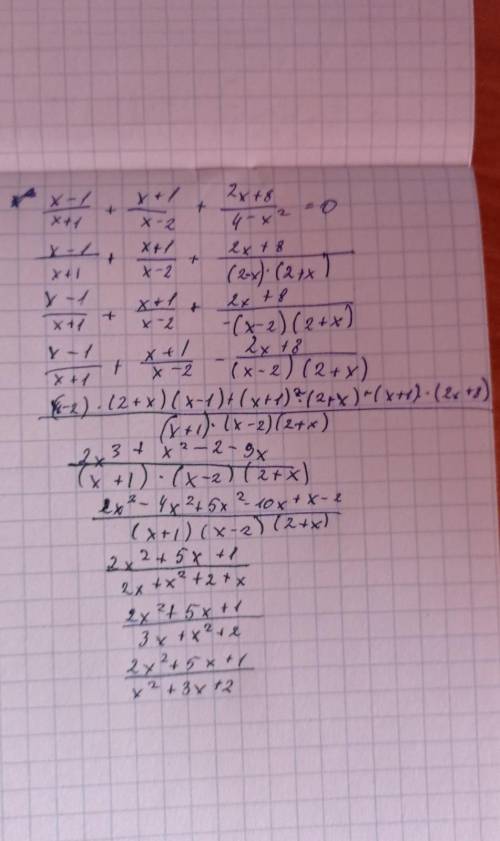 x-1/x+1 + x+1/x-2 + 2x+8/4-x² = 0
x-1/x+1 + x+1/x-2 + 2x+8/(2-x)·(2+x)
x-1/x+1 + x+1/x-2 + 2x+8/-(x-2)(2+x)
x-1/x+1 + x+1/x-2 - 2x+8/(x-2)(2+x)
(x-2)·(2+x)(x-1)+(x+1)²·(2+x)-(x+1)·(2x+8)/(x+1)·(x-2)(2+x)
2x³+x²-2-9x/(x+1)·(x-2)(2+x)
2x²-4x²+5x²-10x+x-2/(x+1)(x-2)(2+x)
2x²+5x+1/2x+x²+2+x
2x²+5x+1/3x+x²+2
2x²+5x+1/x²+3x+2